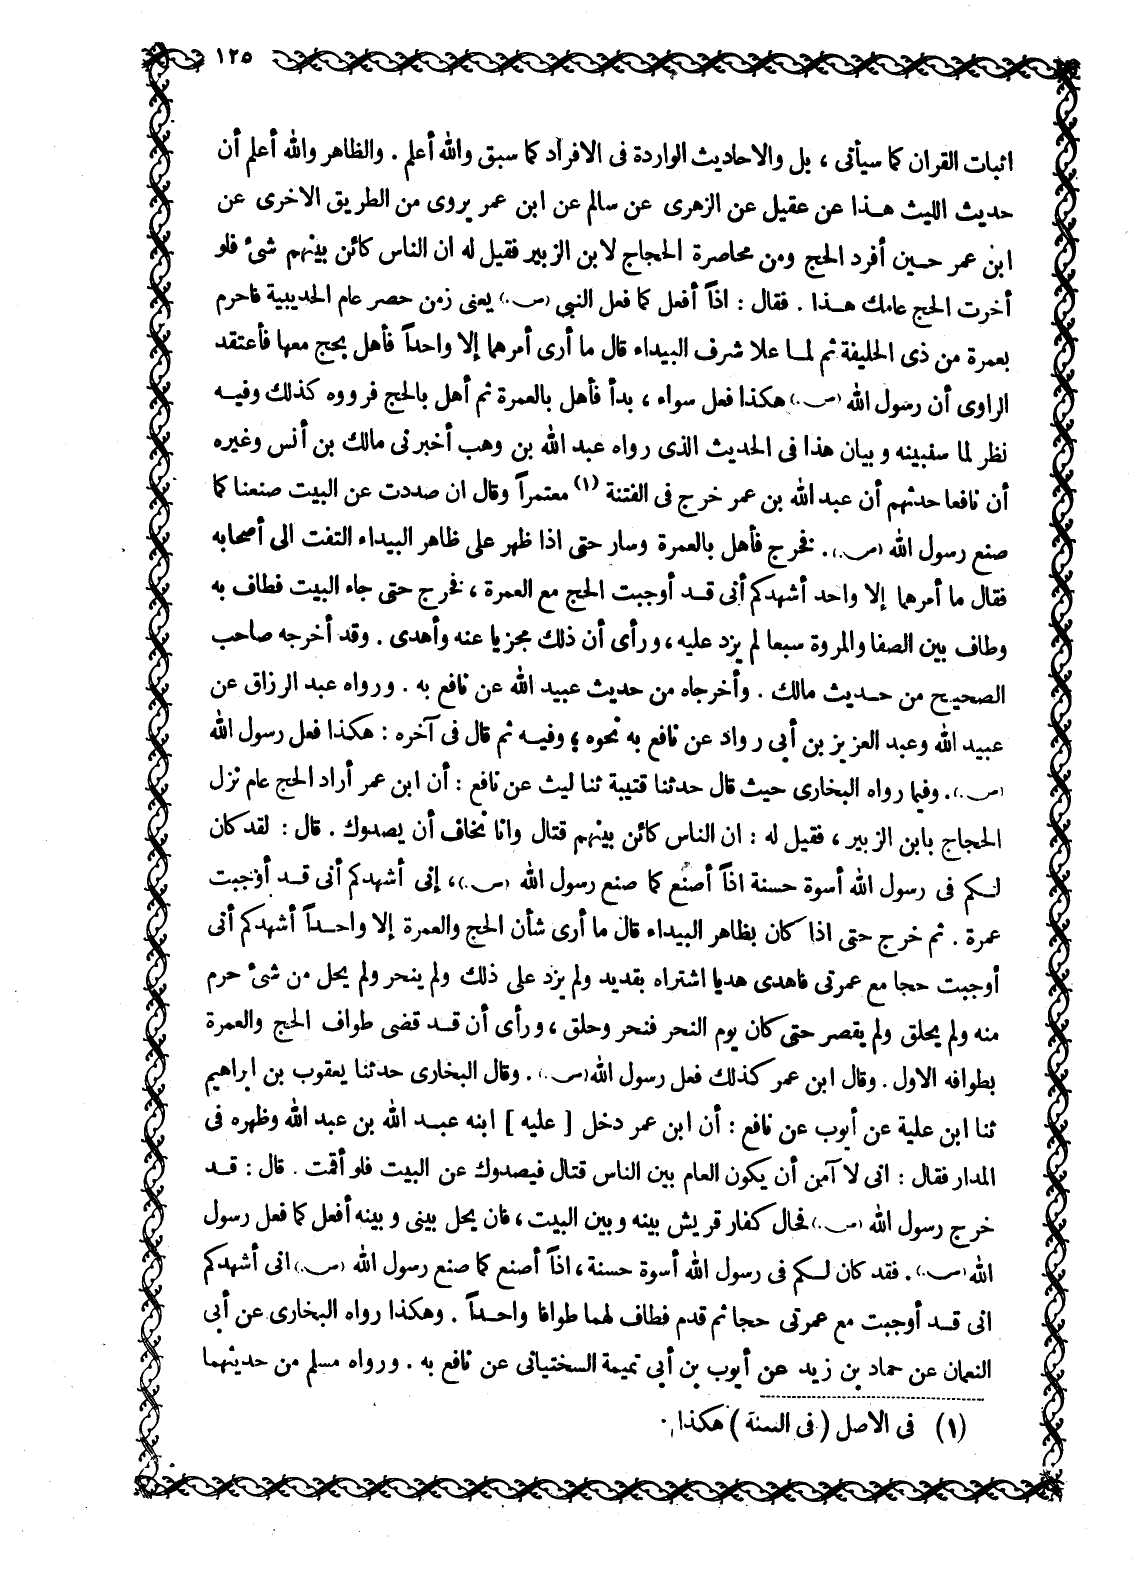 ١٢٥
اثبات القران كما سيأتى ، بل والاحاديث الواردة فى الافراد كما سبق والله أعلم . والظاهر والله أعلم أن
حديث الليث هـذا عن عقيل عن الزهرى عن سالم عن ابن عمر يروى من الطريق الاخرى عن
ابن عمر حـين أفرد الحج ومن محاصرة الحجاج لابن الزبير فقيل له ان الناس كائن بينهم شىء فلو
أخرت الحج عامك هـذا . فقال : اذاً أفعل كما فعل النبي (ص.) يعنى زمن حصر عام الحديبية فاحرم
بعمرة من ذى الحليفة ثم لمـا علا شرف البيداء قال ما أرى أمرهما إلا واحداً فأهل بحج معها فأعتقد
الراوى أن رسول الله (ص.) هكذا فعل سواء ، بدأ فأهل بالعمرة ثم أهل بالحج فرووه كذلك وفيـه
نظر لما سنبينه وبيان هذا فى الحديث الذى رواه عبد الله بن وهب أخبرنى مالك بن أنس وغيره
أن نافعا حدثهم أن عبد الله بن عمر خرج فى الفتنة (١) معتمراً وقال ان صددت عن البيت صنعنا كما
صنع رسول الله (ص.). فخرج فأهل بالعمرة وسار حتى اذا ظهر على ظاهر البيداء التفت الى أصحابه
فقال ما أمرهما إلا واحد أشهدكم أنى قـد أوجبت الحج مع العمرة ، فخرج حتى جاء البيت فطاف به
وطاف بين الصفا والمروة سبعا لم يزد عليه ، ورأى أن ذلك مجزيا عنه وأهدى . وقد أخرجه صاحب
الصحيح من حـديث مالك . وأخرجاه من حديث عبيد الله عن نافع به . ورواه عبد الرزاق عن
عبيد الله وعبد العزيز بن أبي رواد عن نافع به نحوه ، وفيـه ثم قال فى آخره : هكذا فعل رسول الله
(ص.). وفيما رواه البخارى حيث قال حدثنا قتيبة ثنا ليث عن نافع : أن ابن عمر أراد الحج عام نزل
الحجاج بابن الزبير ، فقيل له : ان الناس كائن بينهم قتال وانا نخاف أن يصدوك . قال : لقد كان
لـكم فى رسول الله أسوة حسنة اذاً أصنع كما صنع رسول الله (ص.)، إنى أشهدكم أنى قـد أوجبت
عمرة . ثم خرج حتى اذا كان بظاهر البيداء قال ما أرى شأن الحج والعمرة إلا واحـداً أشهدكم أنى
أوجبت حجا مع عمرتى فاهدى هديا اشتراه بقديد ولم يزد على ذلك ولم ينحر ولم يحل من شىء حرم
منه ولم يحلق ولم يقصر حتى كان يوم النحر فنحر وحلق ، ورأى أن قـد قضى طواف الحج والعمرة
بطوافه الاول . وقال ابن عمر كذلك فعل رسول الله (ص.) . وقال البخارى حدثنا يعقوب بن ابراهيم
ثنا ابن علية عن أيوب عن نافع : أن ابن عمر دخل [ عليه ] ابنه عبـد الله بن عبد الله وظهره فى
المدار فقال : انى لا آمن أن يكون العام بين الناس قتال فيصدوك عن البيت فلو أقمت . قال : قـد
خرج رسول الله (ص.) فحال كفار قريش بينه وبين البيت ، فان يحل بينى وبينه أفعل كما فعل رسول
الله (ص.). فقد كان لـكم فى رسول الله أسوة حسنة ، اذاً أصنع كما صنع رسول الله (ص.) انى أشهدكم
انى قـد أوجبت مع عمرتى حجا ثم قدم فطاف لهما طوافا واحـداً . وهكذا رواه البخارى عن أبى
النعمان عن حماد بن زيد عن أيوب بن أبي تميمة السختيانى عن نافع به . ورواه مسلم من حديثهما
(١) فى الاصل ( فى السنة ) هكذا .